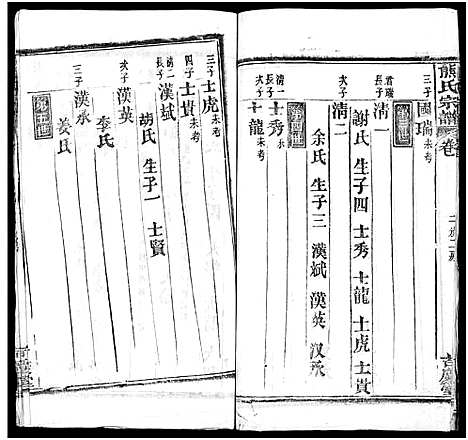 熊氏宗譜 卷
三子 國瑞 未考
長子 清一
謝氏 生子四 士秀 士龍 士虎 士貴
次子 清二
余氏 生子三 漢斌 漢英 汉承
清一長子 士秀 未考
次子 士龍 未考
三子 士虎 未考
四子 士貴 未考
清二長子 漢斌
胡氏 生子一 士賢
次子 漢英
李氏
三子 漢承
姜氏